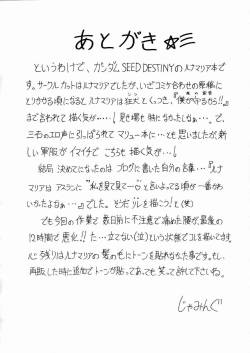 あとがき☆彡
というわけで、ガンダムSEED DESTINYのルナマリア本で
す。サークルカットはルナマリアでしたが、いざコミケ合わせの原稿に
とりかかる頃になるとルナマリアは狂犬とくっつき、"僕がやるもう!!"
まで言われて描く気が……! 見せ場も特になかったしなぁ…。で、
三石のエロ声に引っぱられてマリュー本に…とも思いましたが、新
しい軍服が イマイチで こちらも 描く気が…!
結局 決めてになったのは ブログに書いた自分の言葉…『ルナ
マリアは アスランに "私を見て見てー♡"と言いよってる頃が一番かわ
いかったよなぁ…』でした。そんだルナを描こう!と(笑)
でも今回の作業で数日前に不注意で痛めた腰が最後の
12時間で悪化!!た…立てない(泣)という状態でコレを描いてます。
心残りはルナマリアの髪の毛にトーンを貼れなかった事です。もし、
再販した時に追加でトーンが貼ってあっても笑って許して下さいね。
じゃみんぐ